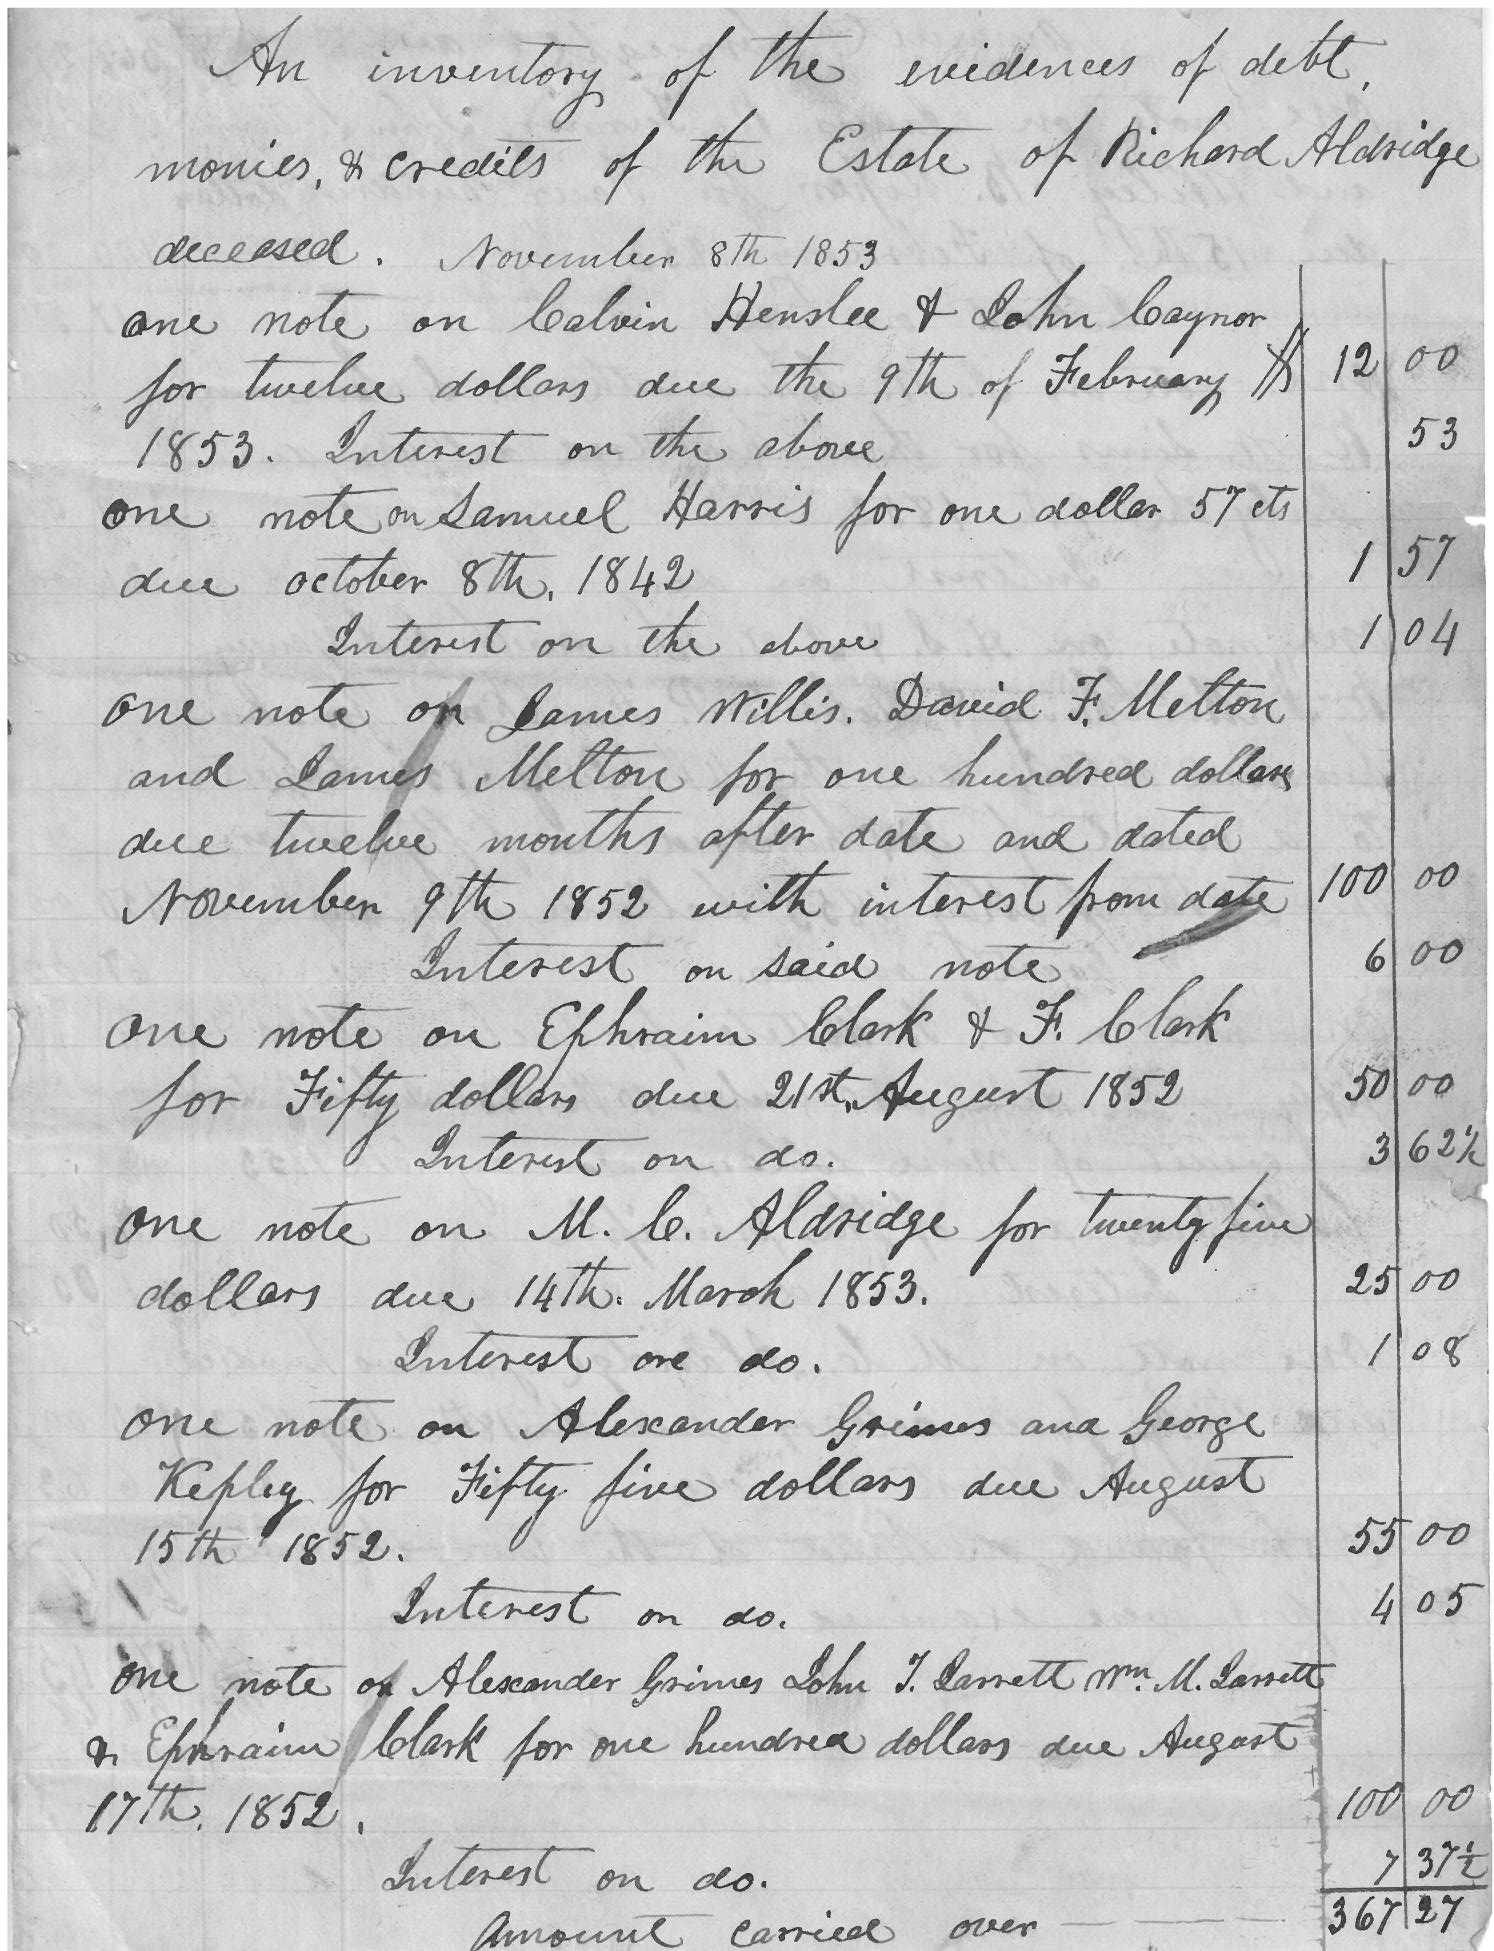 An inventory of the evidences of debt,
monies, & credits of the Estate of Richard Aldridge
deceased. November 8th 1853
one note on Calvin Henslee & John Caynor
for twelve dollars due the 9th of February $ 12 00
1853. Interest on the above 53
one note on Samuel Harris for one dollar 57 cts
due october 8th, 1842 1 57
Interest on the above 1 04
one note on James Willis. David F. Melton
and James Melton for one hundred dollars
due twelve months after date and dated
November 9th 1852 with interest from date 100 00
Interest on said note 6 00
one note on Ephraim Clark & F. Clark
for Fifty dollars due 21st, August 1852 50 00
Interest on do. 3 62 1/2
one note on M. C. Aldridge for twenty five
dollars due 14th. March 1853. 25 00
Interest on do. 1 08
one note on Alexander Grimes and George
Kepley for Fifty five dollars due August
15th 1852. 55 00
Interest on do. 4 05
one note on Alexander Grimes John T. Jarrett Wm. M. Jarrett
& Ephraim Clark for one hundred dollars due August
17th. 1852. 100 00
Interest on do. 7 37 1/2
Amount carried over 367 27